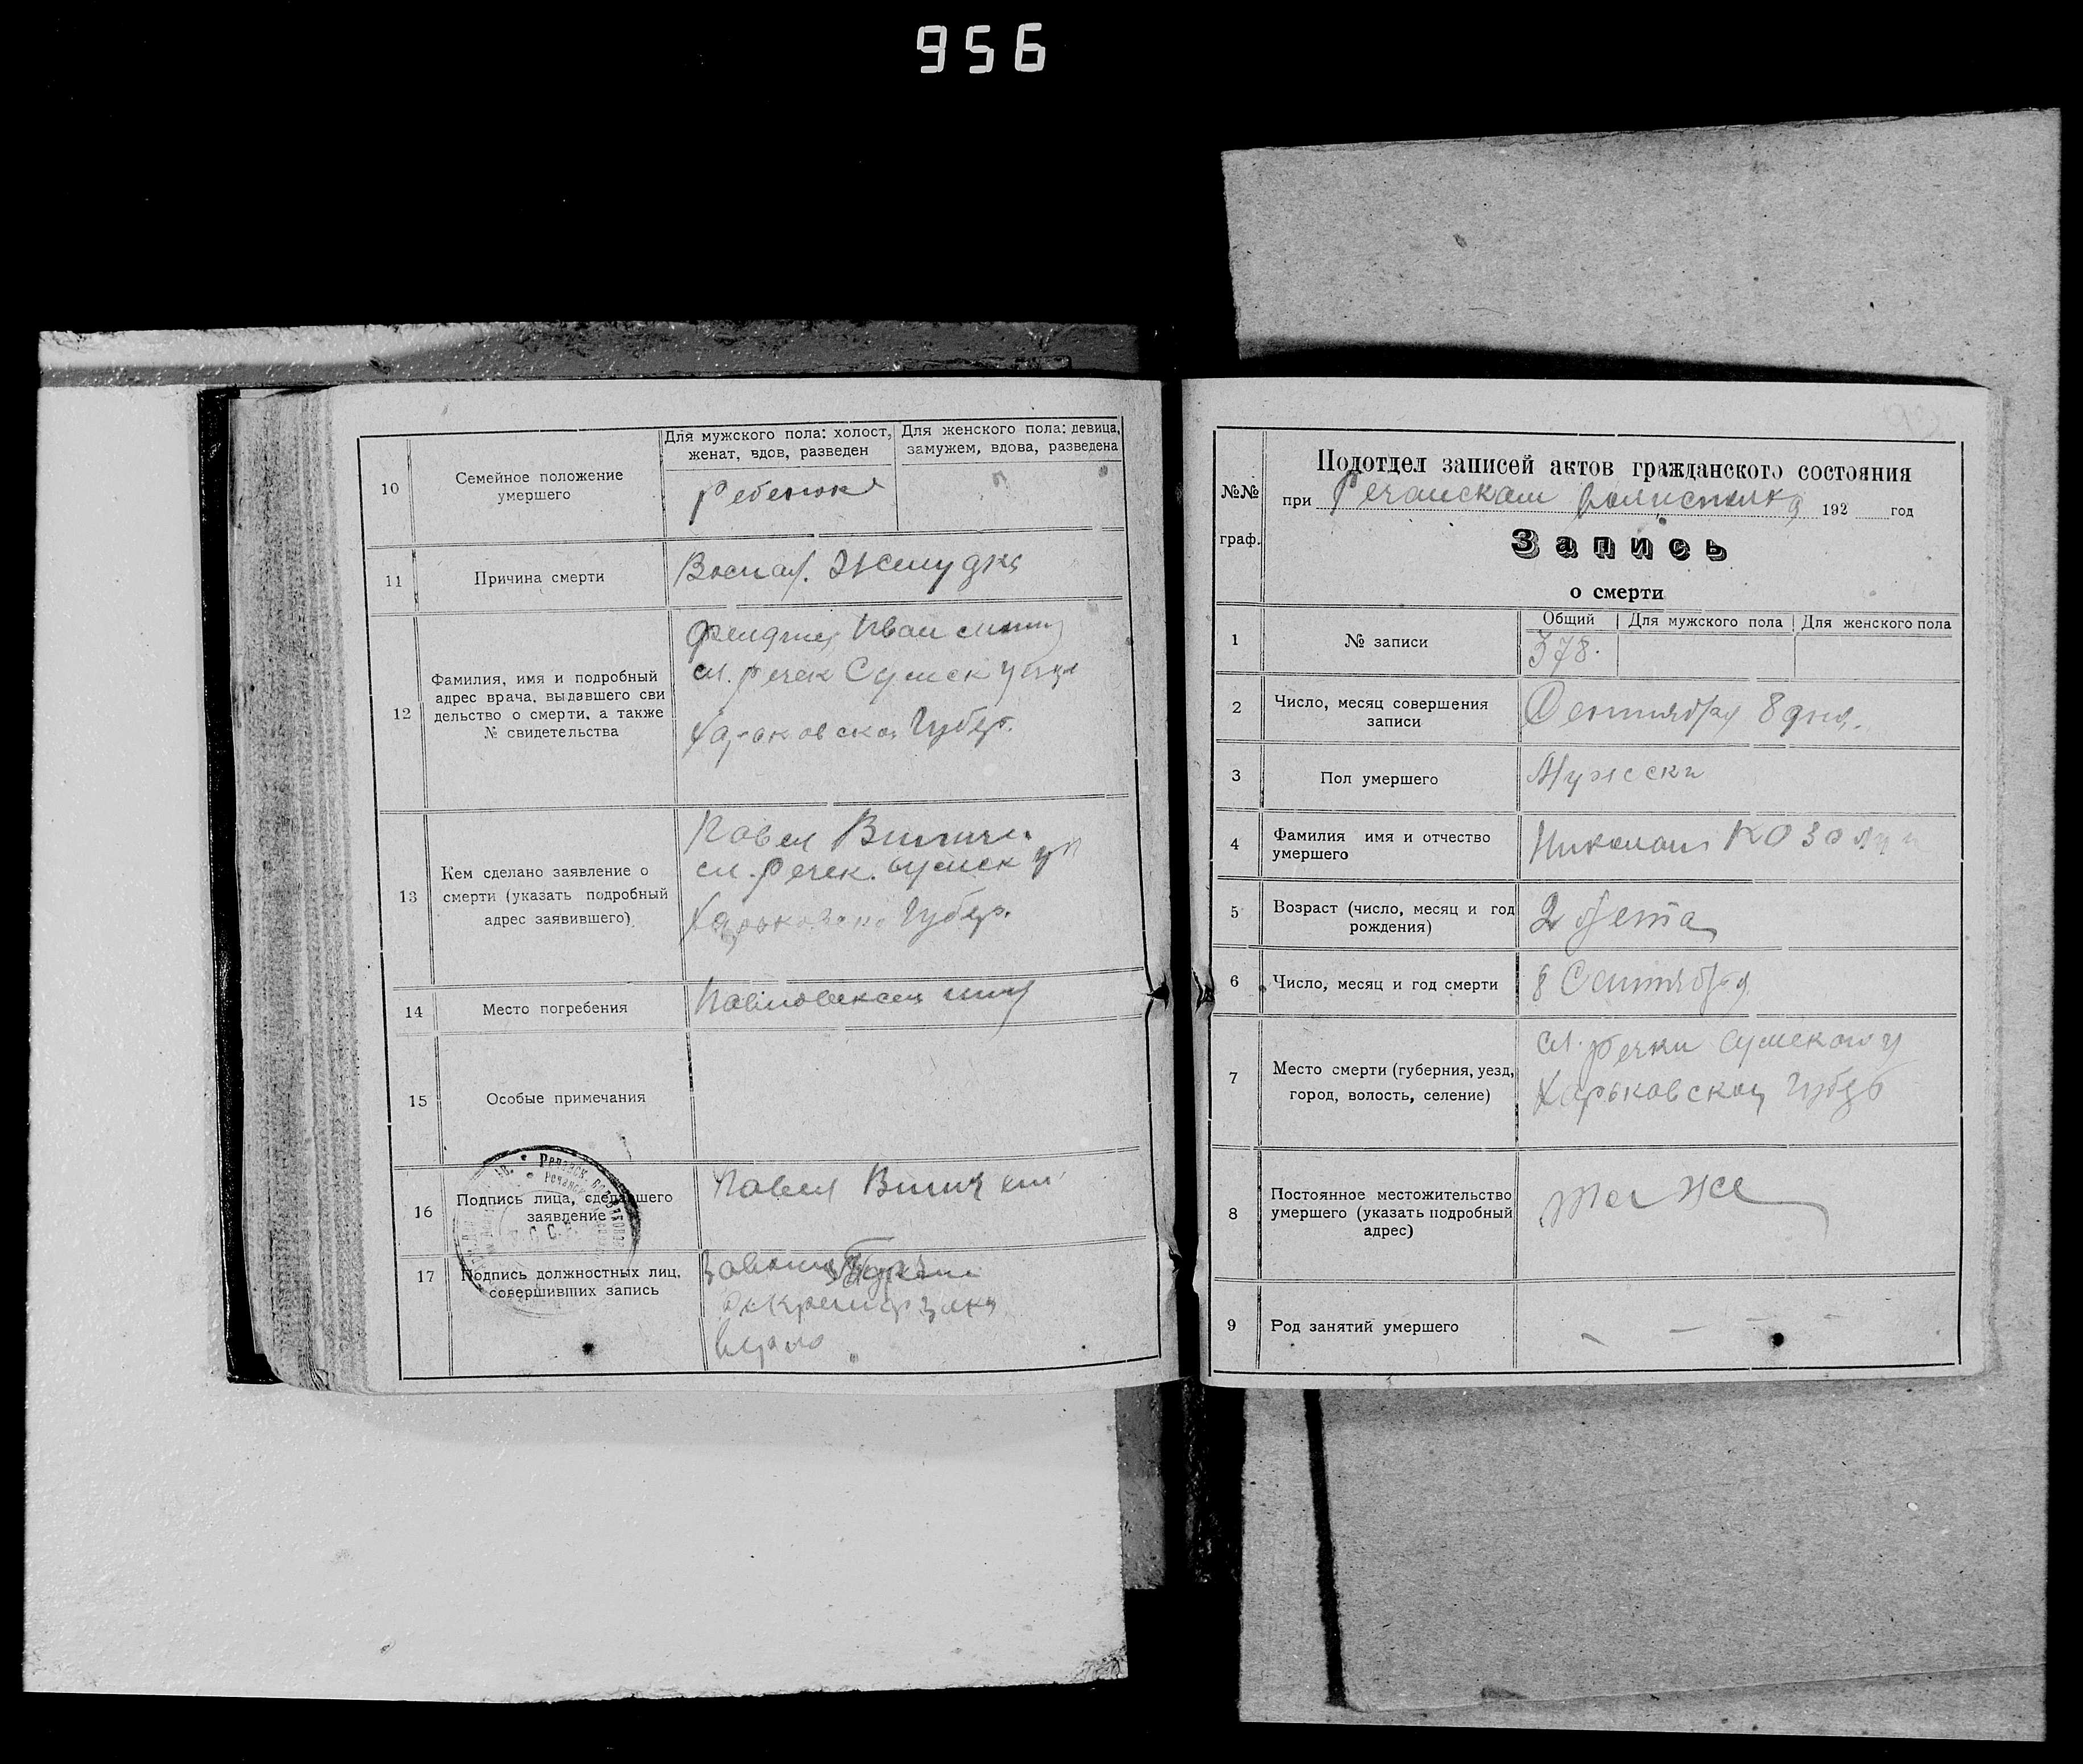 956
10
Семейное положение
умершего
Для мужского пола: холост,
женат, вдов, разведен
Для женского пола: девица,
замужем, вдова, разведена
ребенок
11
Причина смерти
Воспал. Желудка
12
Фамилия, имя и подробный
адрес врача, выдавшего сви
дельство о смерти, а также
№ свидетельства
Иван
сл. речек Сумск
Харьковской Губер.
13
Кем сделано заявление о
смерти (указать подробный
адрес заявившего)
Павел
сл. речек. Сумск
Харьковской Губер.
14
Место погребения
15
Особые примечания
16
Подпись лица, сделавшего
заявление
Павел
17
Подпись должностных лиц,
совершивших запись
№№
граф.
Подотдел записей актов гражданского состояния
при Речанском 192 год
Запись
о смерти
1
№ записи
Общий
Для мужского пола
Для женского пола
378.
2
Число, месяц совершения
записи
Сентября 8 дня.
3
Пол умершего
Мужски
4
Фамилия имя и отчество
умершего
Николай
5
Возраст (число, месяц и год
рождения)
2 лета
6
Число, месяц и год смерти
8 Сентября
7
Место смерти (губерния, уезд,
город, волость, селение)
сл. речки Сумского у
Харьковской Губер
8
Постоянное местожительство
умершего (указать подробный
адрес)
та же
9
Род занятий умершего